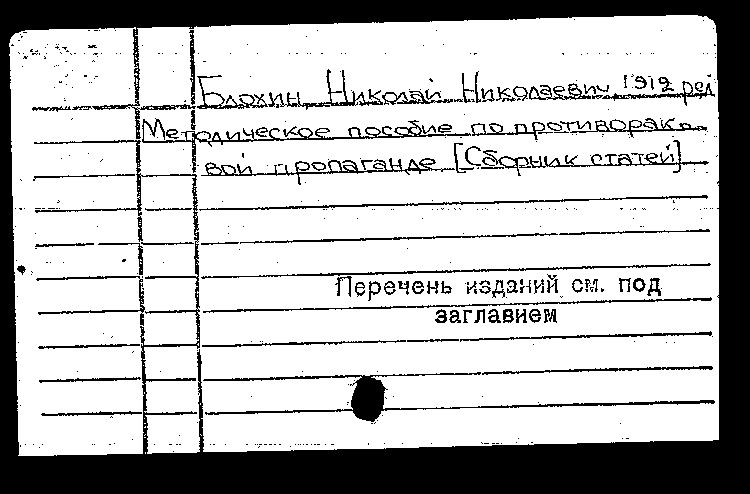 Блохин, Николай Николаевич, 1912 ред
Методическое пособие по противорако-
вой пропаганде [Сборник статей]
Перечень изданий см. под
заглавием